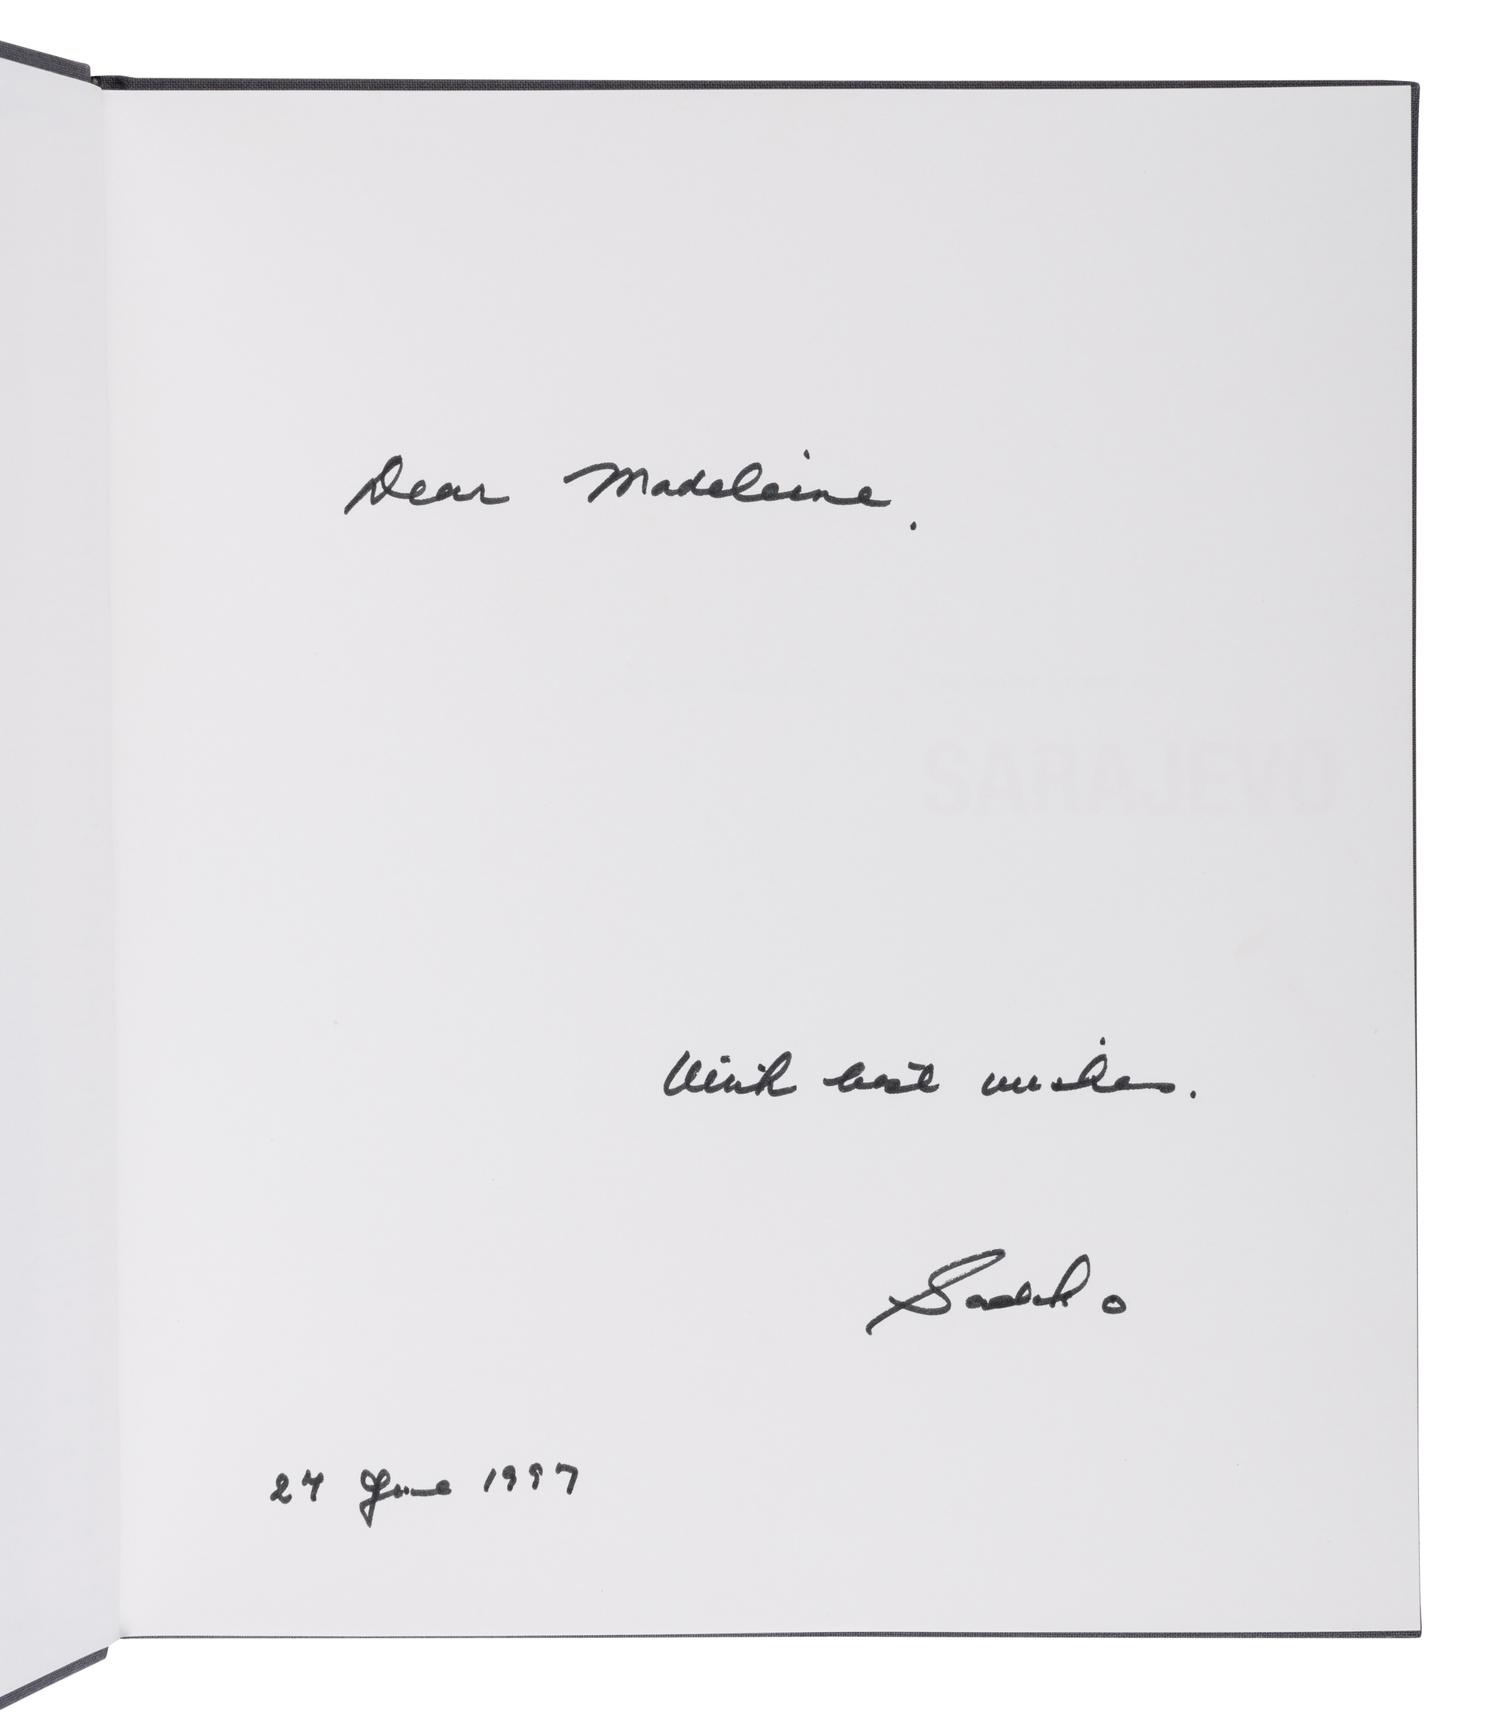 Dear Madeleine.
SARAJEVO
With best wishes.
Sadako
27 June 1997